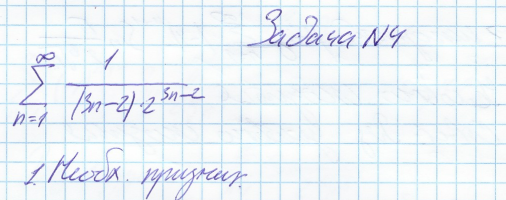 Задача N4
∞
∑ 1
n=1 (3n-2)·2^{3n-2}
1. Необх. признак.